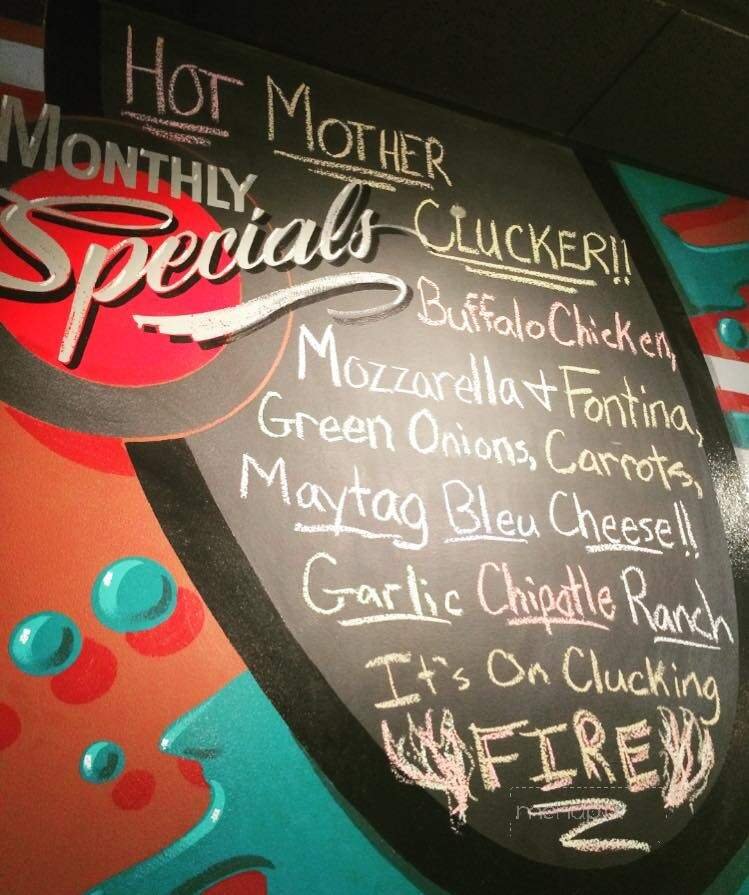 HOT MOTHER
CLUCKER!!
MONTHLY
Specials
Buffalo Chicken,
Mozzarella + Fontina,
Green Onions, Carrots,
Maytag Bleu Cheese!!
Garlic Chipotle Ranch
It's On Clucking
FIRE